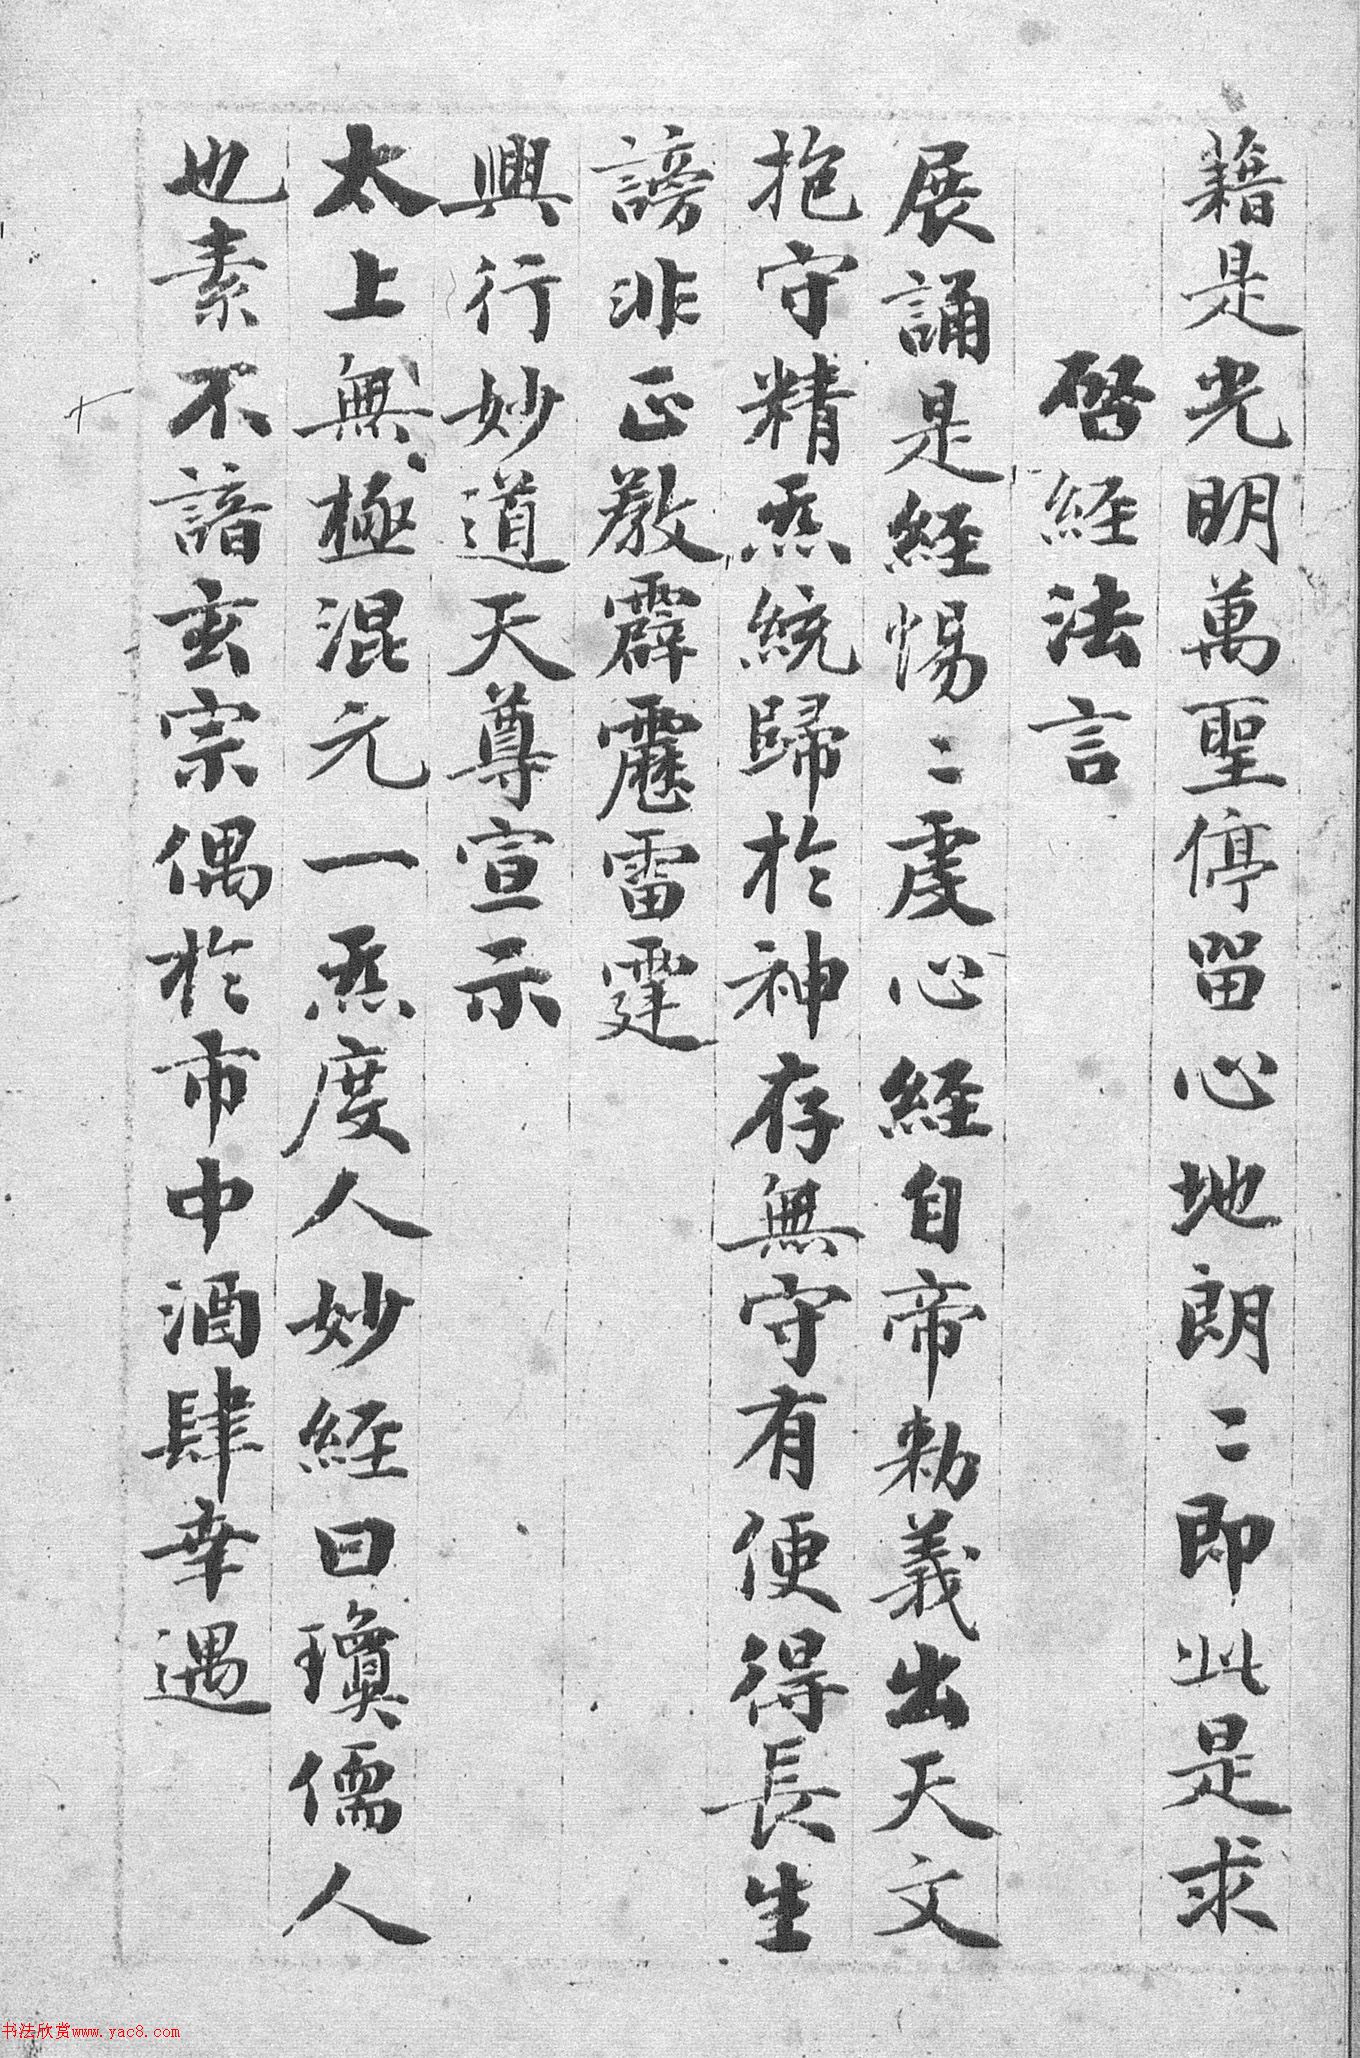 藉是光明萬聖停留心地朗〻即此是求
啓経法言
展誦是経惕〻虔心経自帝勅義出天文
抱守精炁統歸於神存無守有便得長生
謗非正教霹靂雷霆
興行妙道天尊宣示
太上無極混元一炁度人妙経曰瓊儒人
也素不諳玄宗偶於市中酒肆幸遇
书法欣赏www.yac8.com